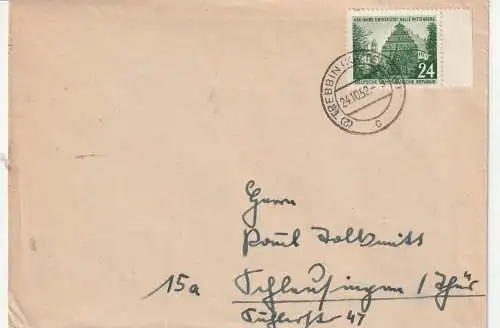 450 JAHRE UNIVERSITÄT HALLE-WITTENBERG
24
DEUTSCHE DEMOKRATISCHE REPUBLIK
(2) TREBBIN
24.10.52
c
Herrn
Paul
15a Schleusingen / Thür
47